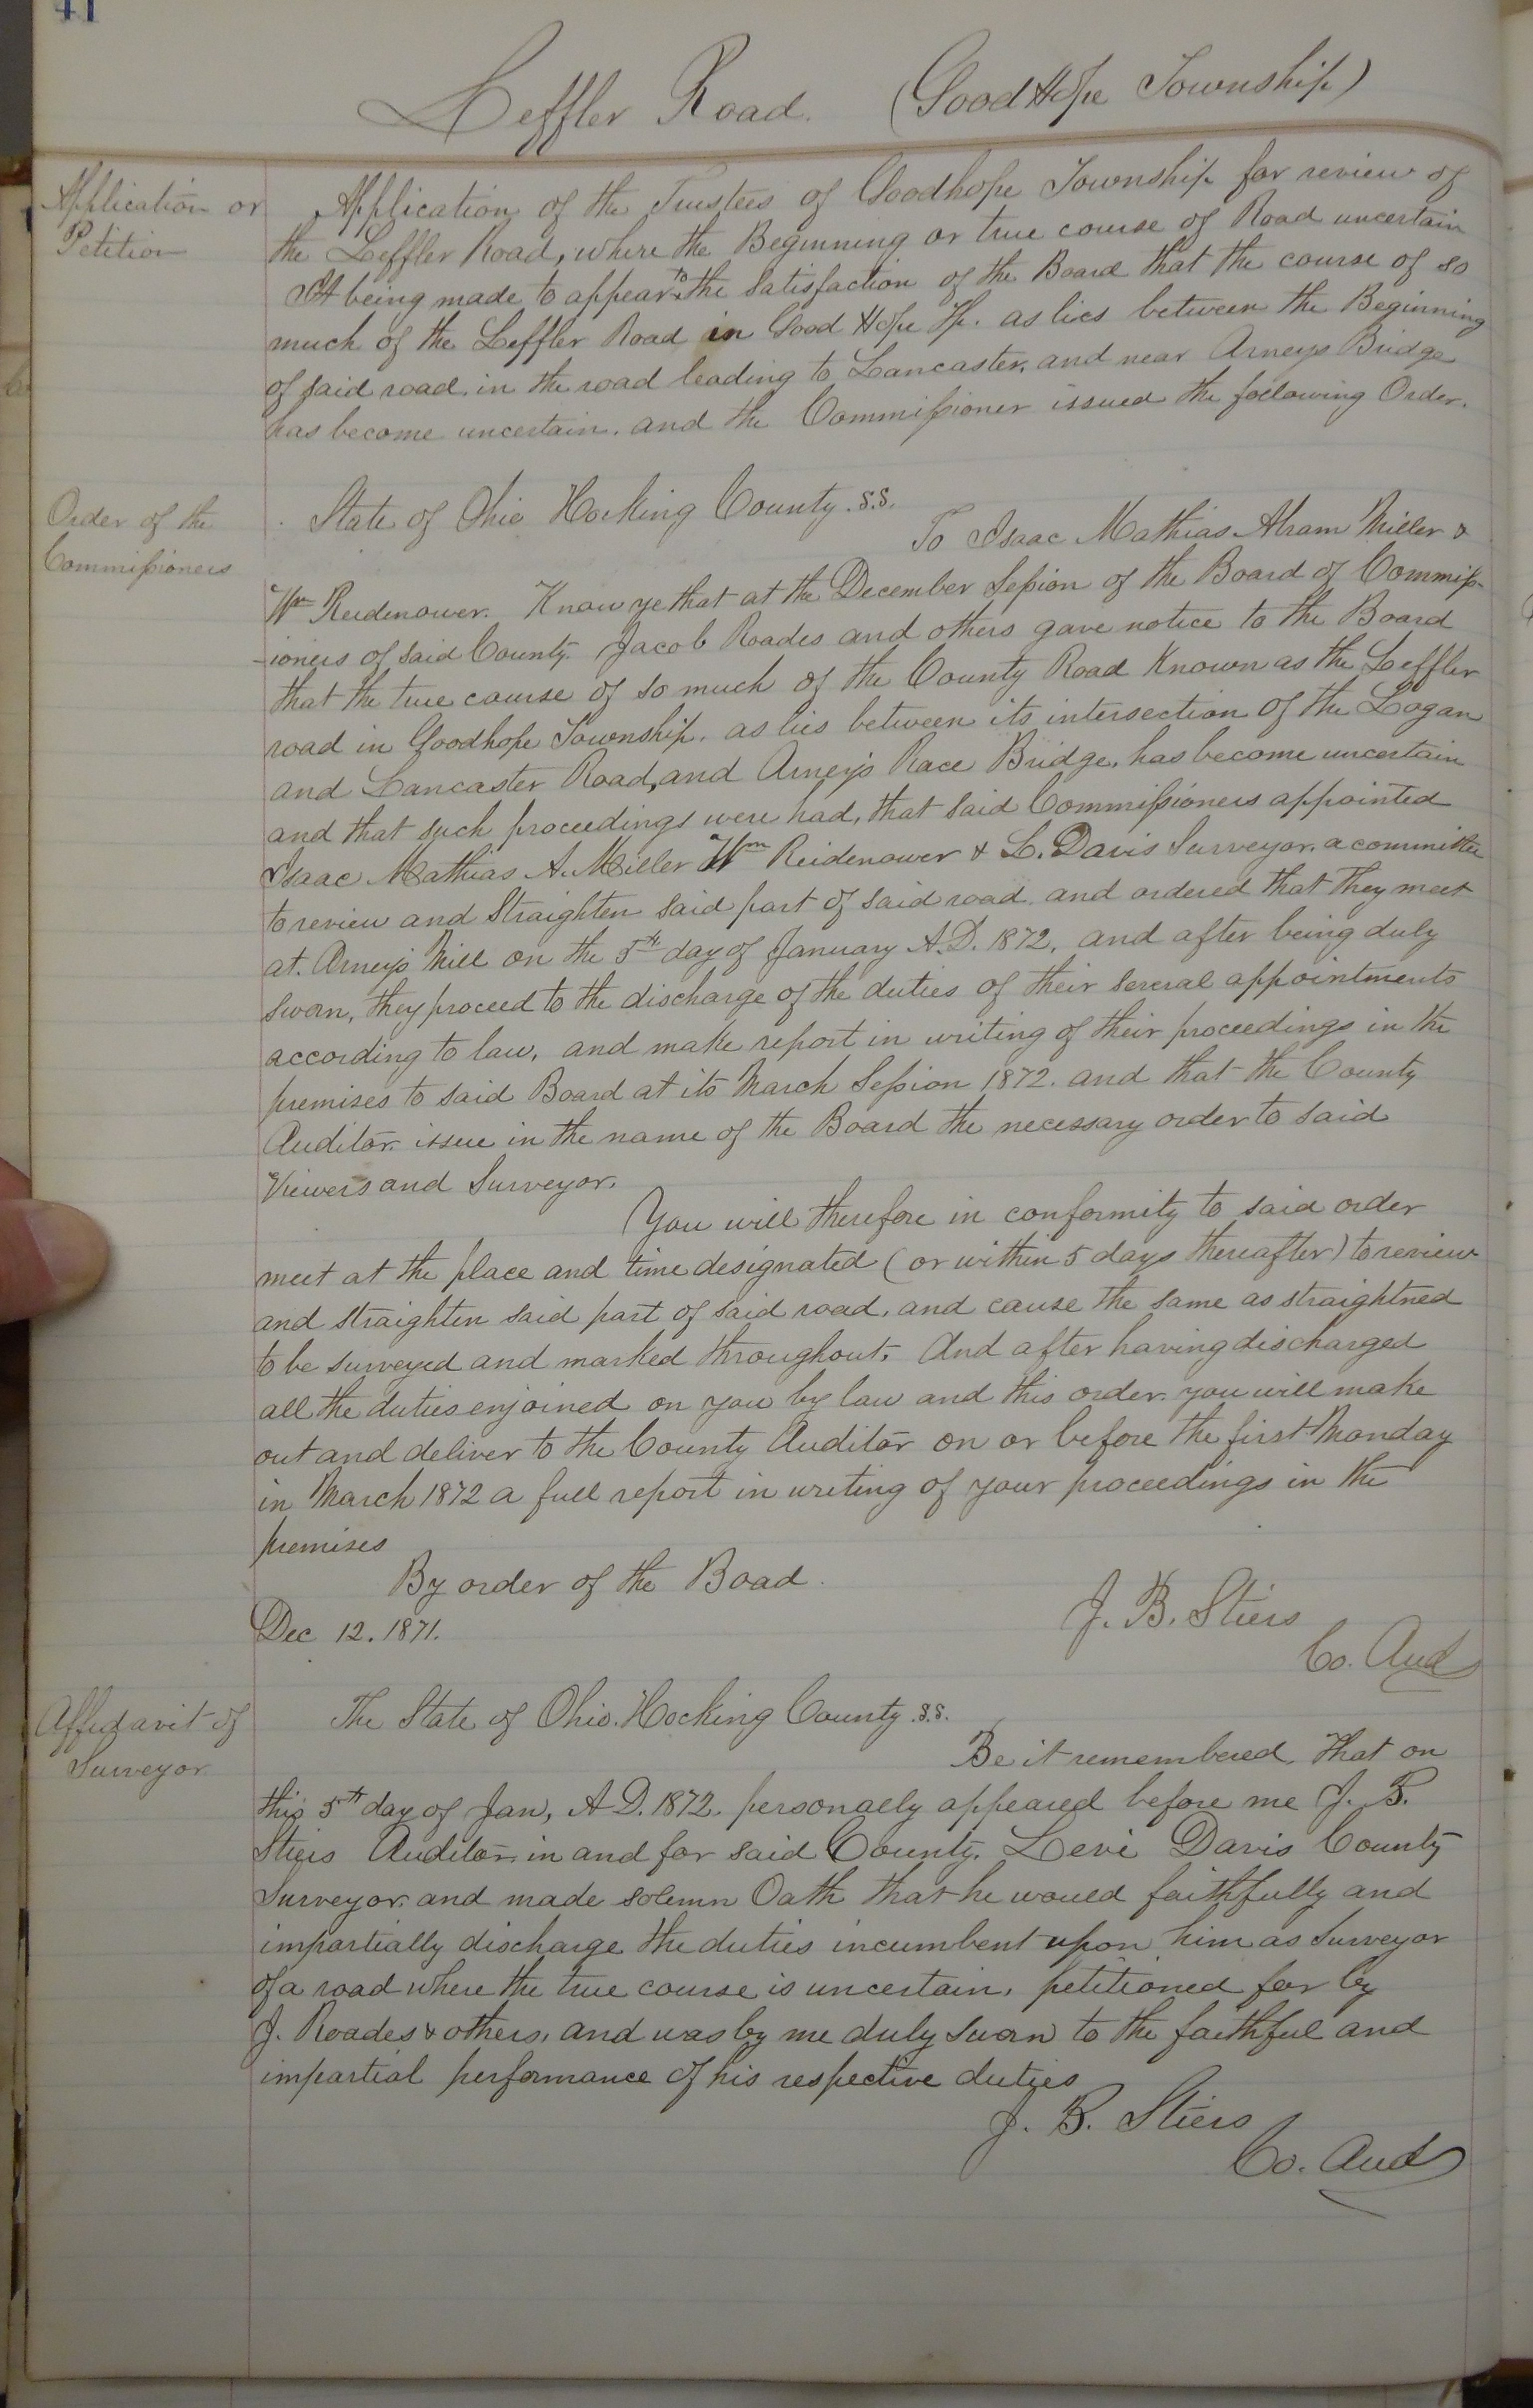 41
Leffler Road. (Good Hope Township)
Application or
Petition
Application of the Trustees of Goodhope Township for review of
the Leffler Road, where the Beginning or true course of Road uncertain
It being made to appear to the Satisfaction of the Board that the course of so
much of the Leffler Road in Good Hope Tp. as lies between the Beginning
of said road in the road leading to Lancaster, and near Arneys Bridge
has become uncertain. and the Commissioner issued the following Order.
Order of the
Commissioners
State of Ohio Hocking County. s.s.
To Isaac Mathias Abram Miller &
Wm Reidenower. Know ye that at the December Session of the Board of Commiss-
-ioners of said County. Jacob Roades and others gave notice to the Board
that the true course of so much of the County Road Known as the Leffler
road in Goodhope Township. as lies between its intersection of the Logan
and Lancaster Road, and Arney's Race Bridge, has become uncertain
and that such proceedings were had, that said Commissioners appointed
Isaac Mathias A. Miller Wm Reidenower & L. Davis Surveyor. a committee
to review and Straighten said part of said road. and ordered that they meet
at. Arney's Mill on the 5th day of January A.D. 1872, and after being duly
sworn, they proceed to the discharge of the duties of their several appointments
according to law, and make report in writing of their proceedings in the
premises to said Board at its March Session 1872. and that the County
Auditor. issue in the name of the Board the necessary order to said
Viewers and Surveyor.
You will therefore in conformity to said order
meet at the place and time designated (or within 5 days thereafter) to review
and straighten said part of said road, and cause the same as straightned
to be surveyed and marked throughout. And after having discharged
all the duties enjoined on you by law and this order. you will make
out and deliver to the County Auditor on or before the first Monday
in March 1872 a full report in writing of your proceedings in the
premises
By order of the Boad.
Dec 12. 1871.
J. B. Stiers
Co. Aud
Affidavit of
Surveyor
The State of Ohio. Hocking County. s.s.
Be it remembered that on
this 5th day of Jan, A.D. 1872. personally appeared before me J. B.
Stiers Auditor in and for said County. Levi Davis County
Surveyor. and made solemn Oath that he would faithfully and
impartially discharge the duties incumbent upon him as Surveyor
of a road where the true course is uncertain, petitioned for by
J. Roades & others, and was by me duly sworn to the faithful and
impartial performance of his respective duties
J. B. Stiers
Co. Aud